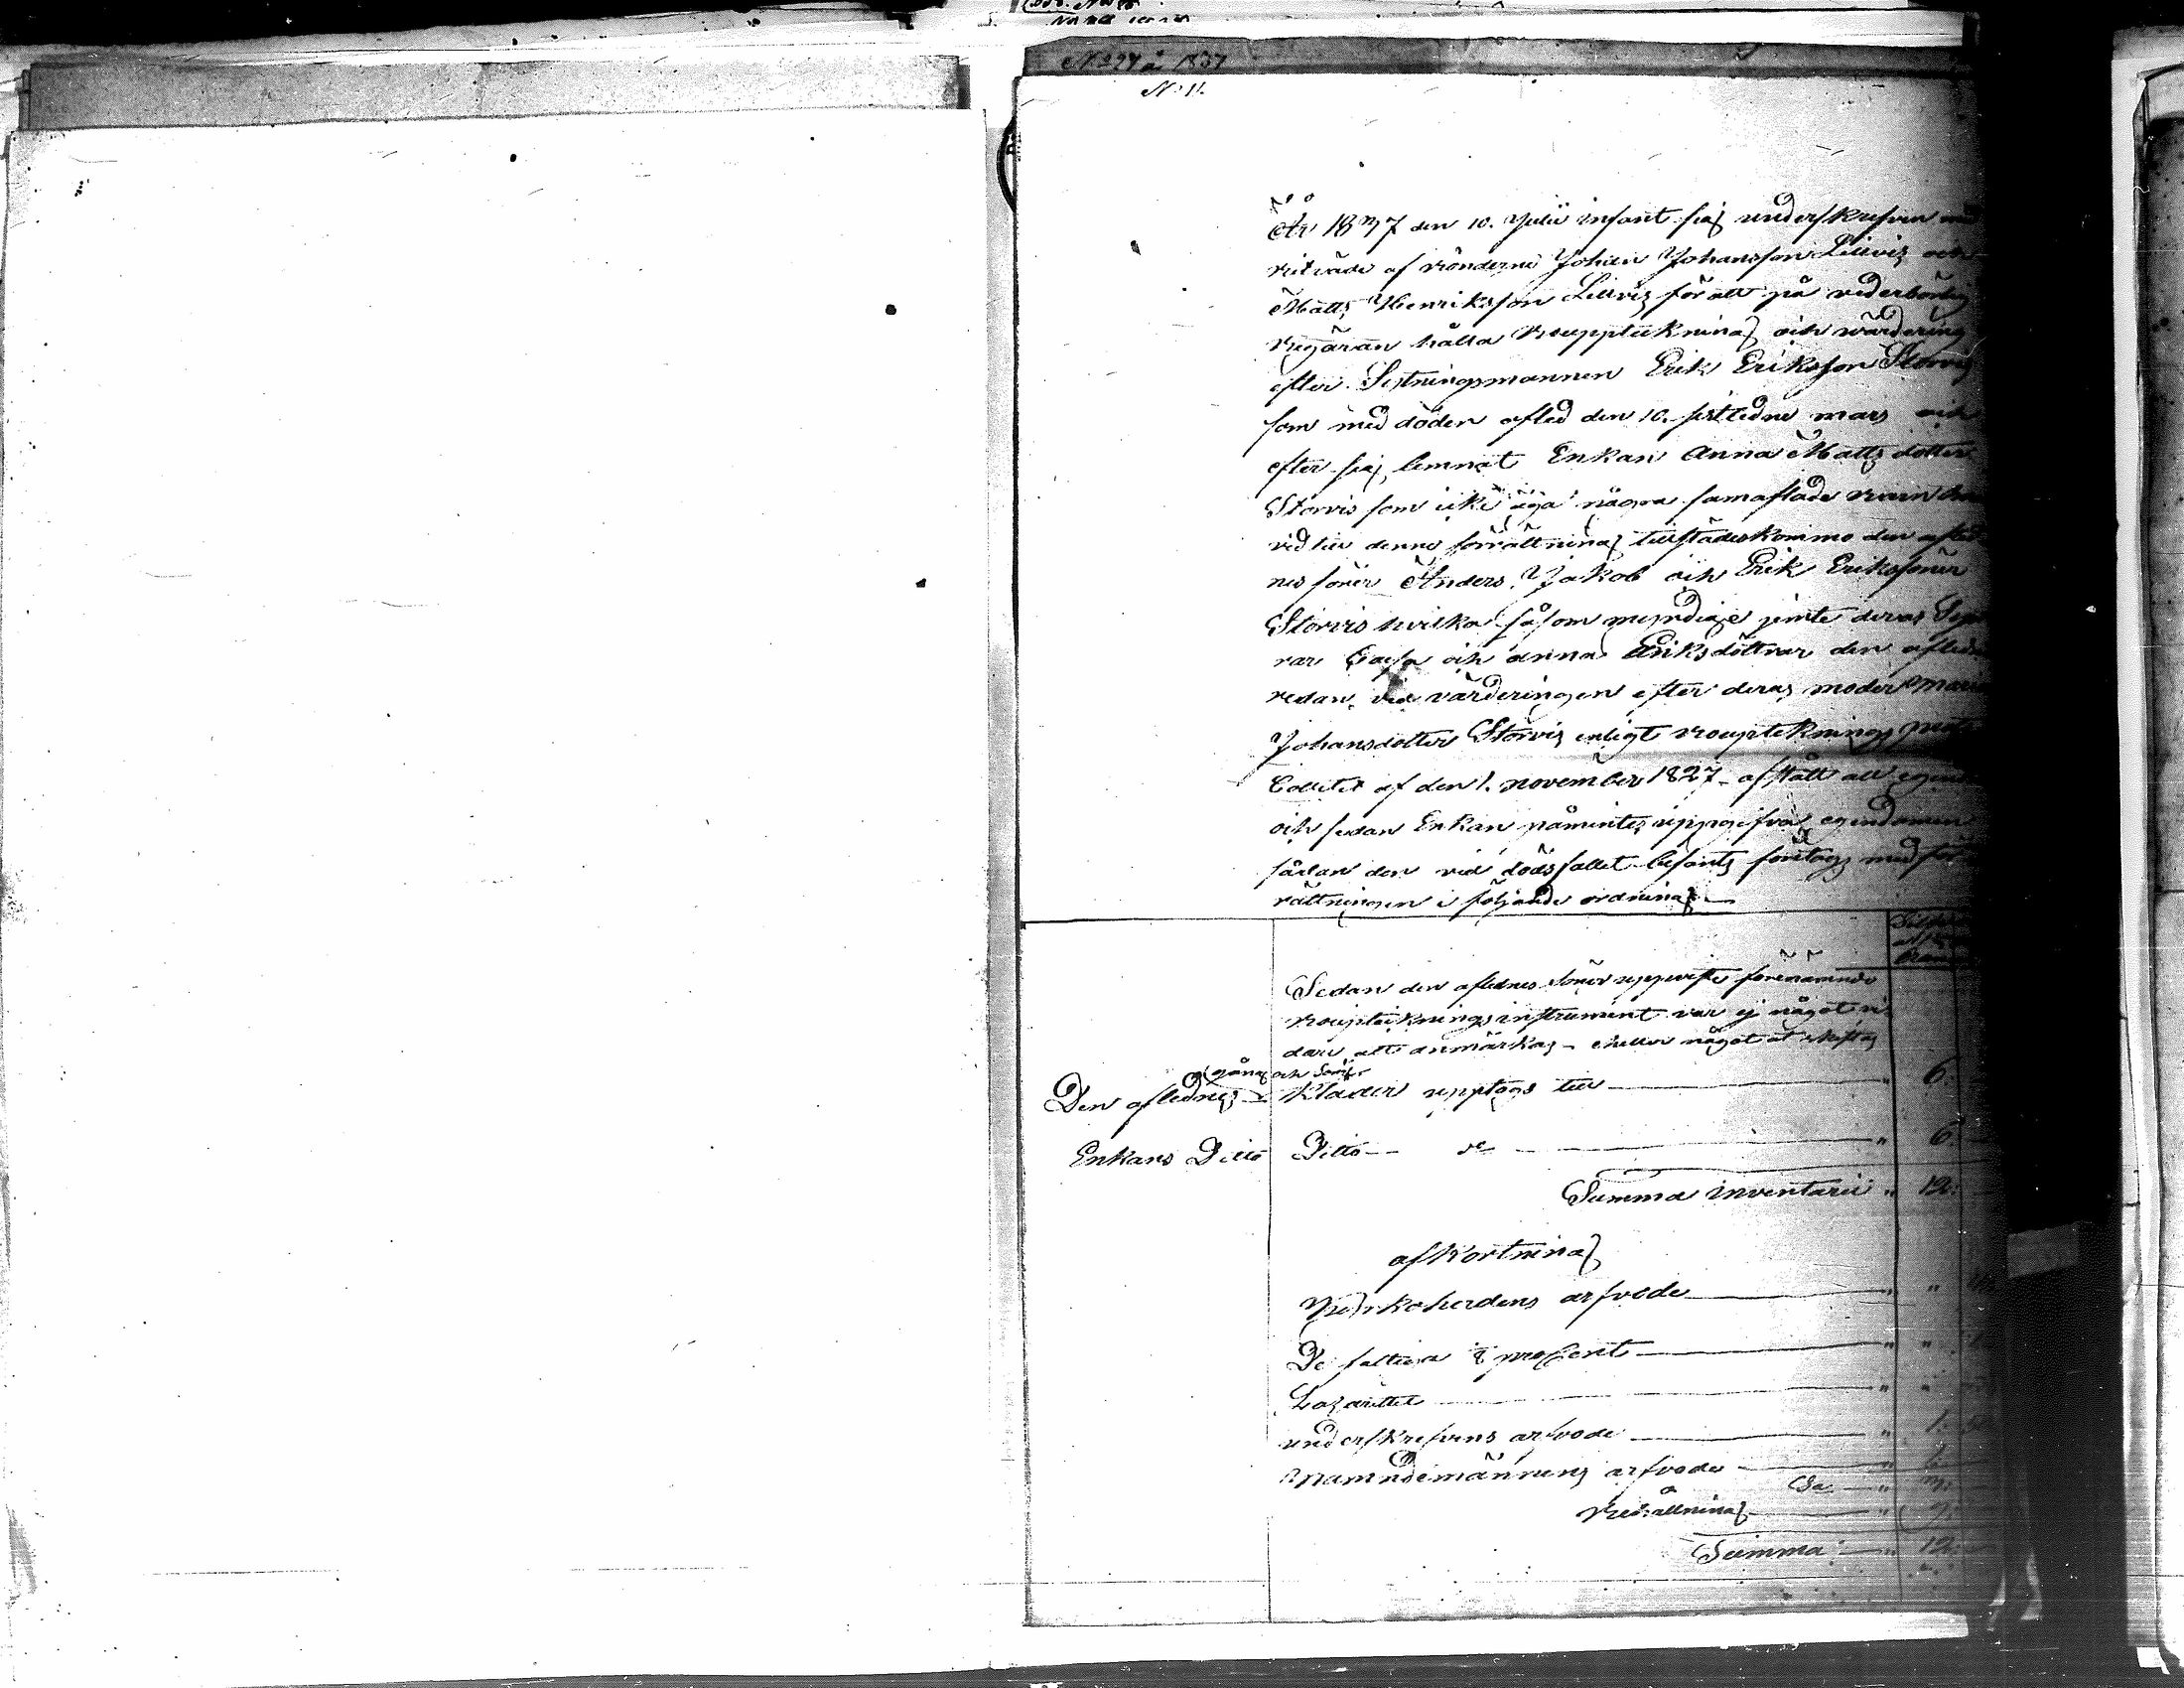 No 27 a 1837
No 11.
År 1837 den 10. Julii infant sig underskrefven med
biträde af bönderne Johan Johansson Lillvis och
Matts Henriksson Lillvis för att på vederbörlig
begäran hålla bouppteckning och värdering
efter Sextningsmannen Erik Eriksson Storvis
som med döden afled den 10. sistledne mars och
efter sig lemnat Enkan Anna Matts dotter
Storvis som icke äga några samaflade barn
vid till denne förrättning tillstädeskommo den afled
nes söner Anders, Jakob och Erik Erikssöner
Storvis hvilka såsom myndige jemte deras
rar Caisa och Anna Eriksdöttrar den afledne
redan vid värderingen efter deras moder Maria
Johansdotter Storvis enligt bouptecknings
collet af den 1. november 1827 afstått all
och sedan Enkan påmintes uppgifva egendomen
sådan den vid dödsfallet befants företogs med
rättningen i följande ordning
Sedan den aflednes söner uppviste förenämnde
boupteckningsinstrument var ej något vi
dare att anmärkas eheller något at skiftas
gång och
Den aflednes kläder upptogs till " 6.
Enkans Ditto Ditto " 6.
Summa inventarii " 12.
afkortning
Kyrkoherdens arfvode " "
De fattiga procent " "
Lazarettet " "
underskrefvens arfvode " 1.
Nämndemännens arfvode "
Sa "
Behållning "
Summa " 12